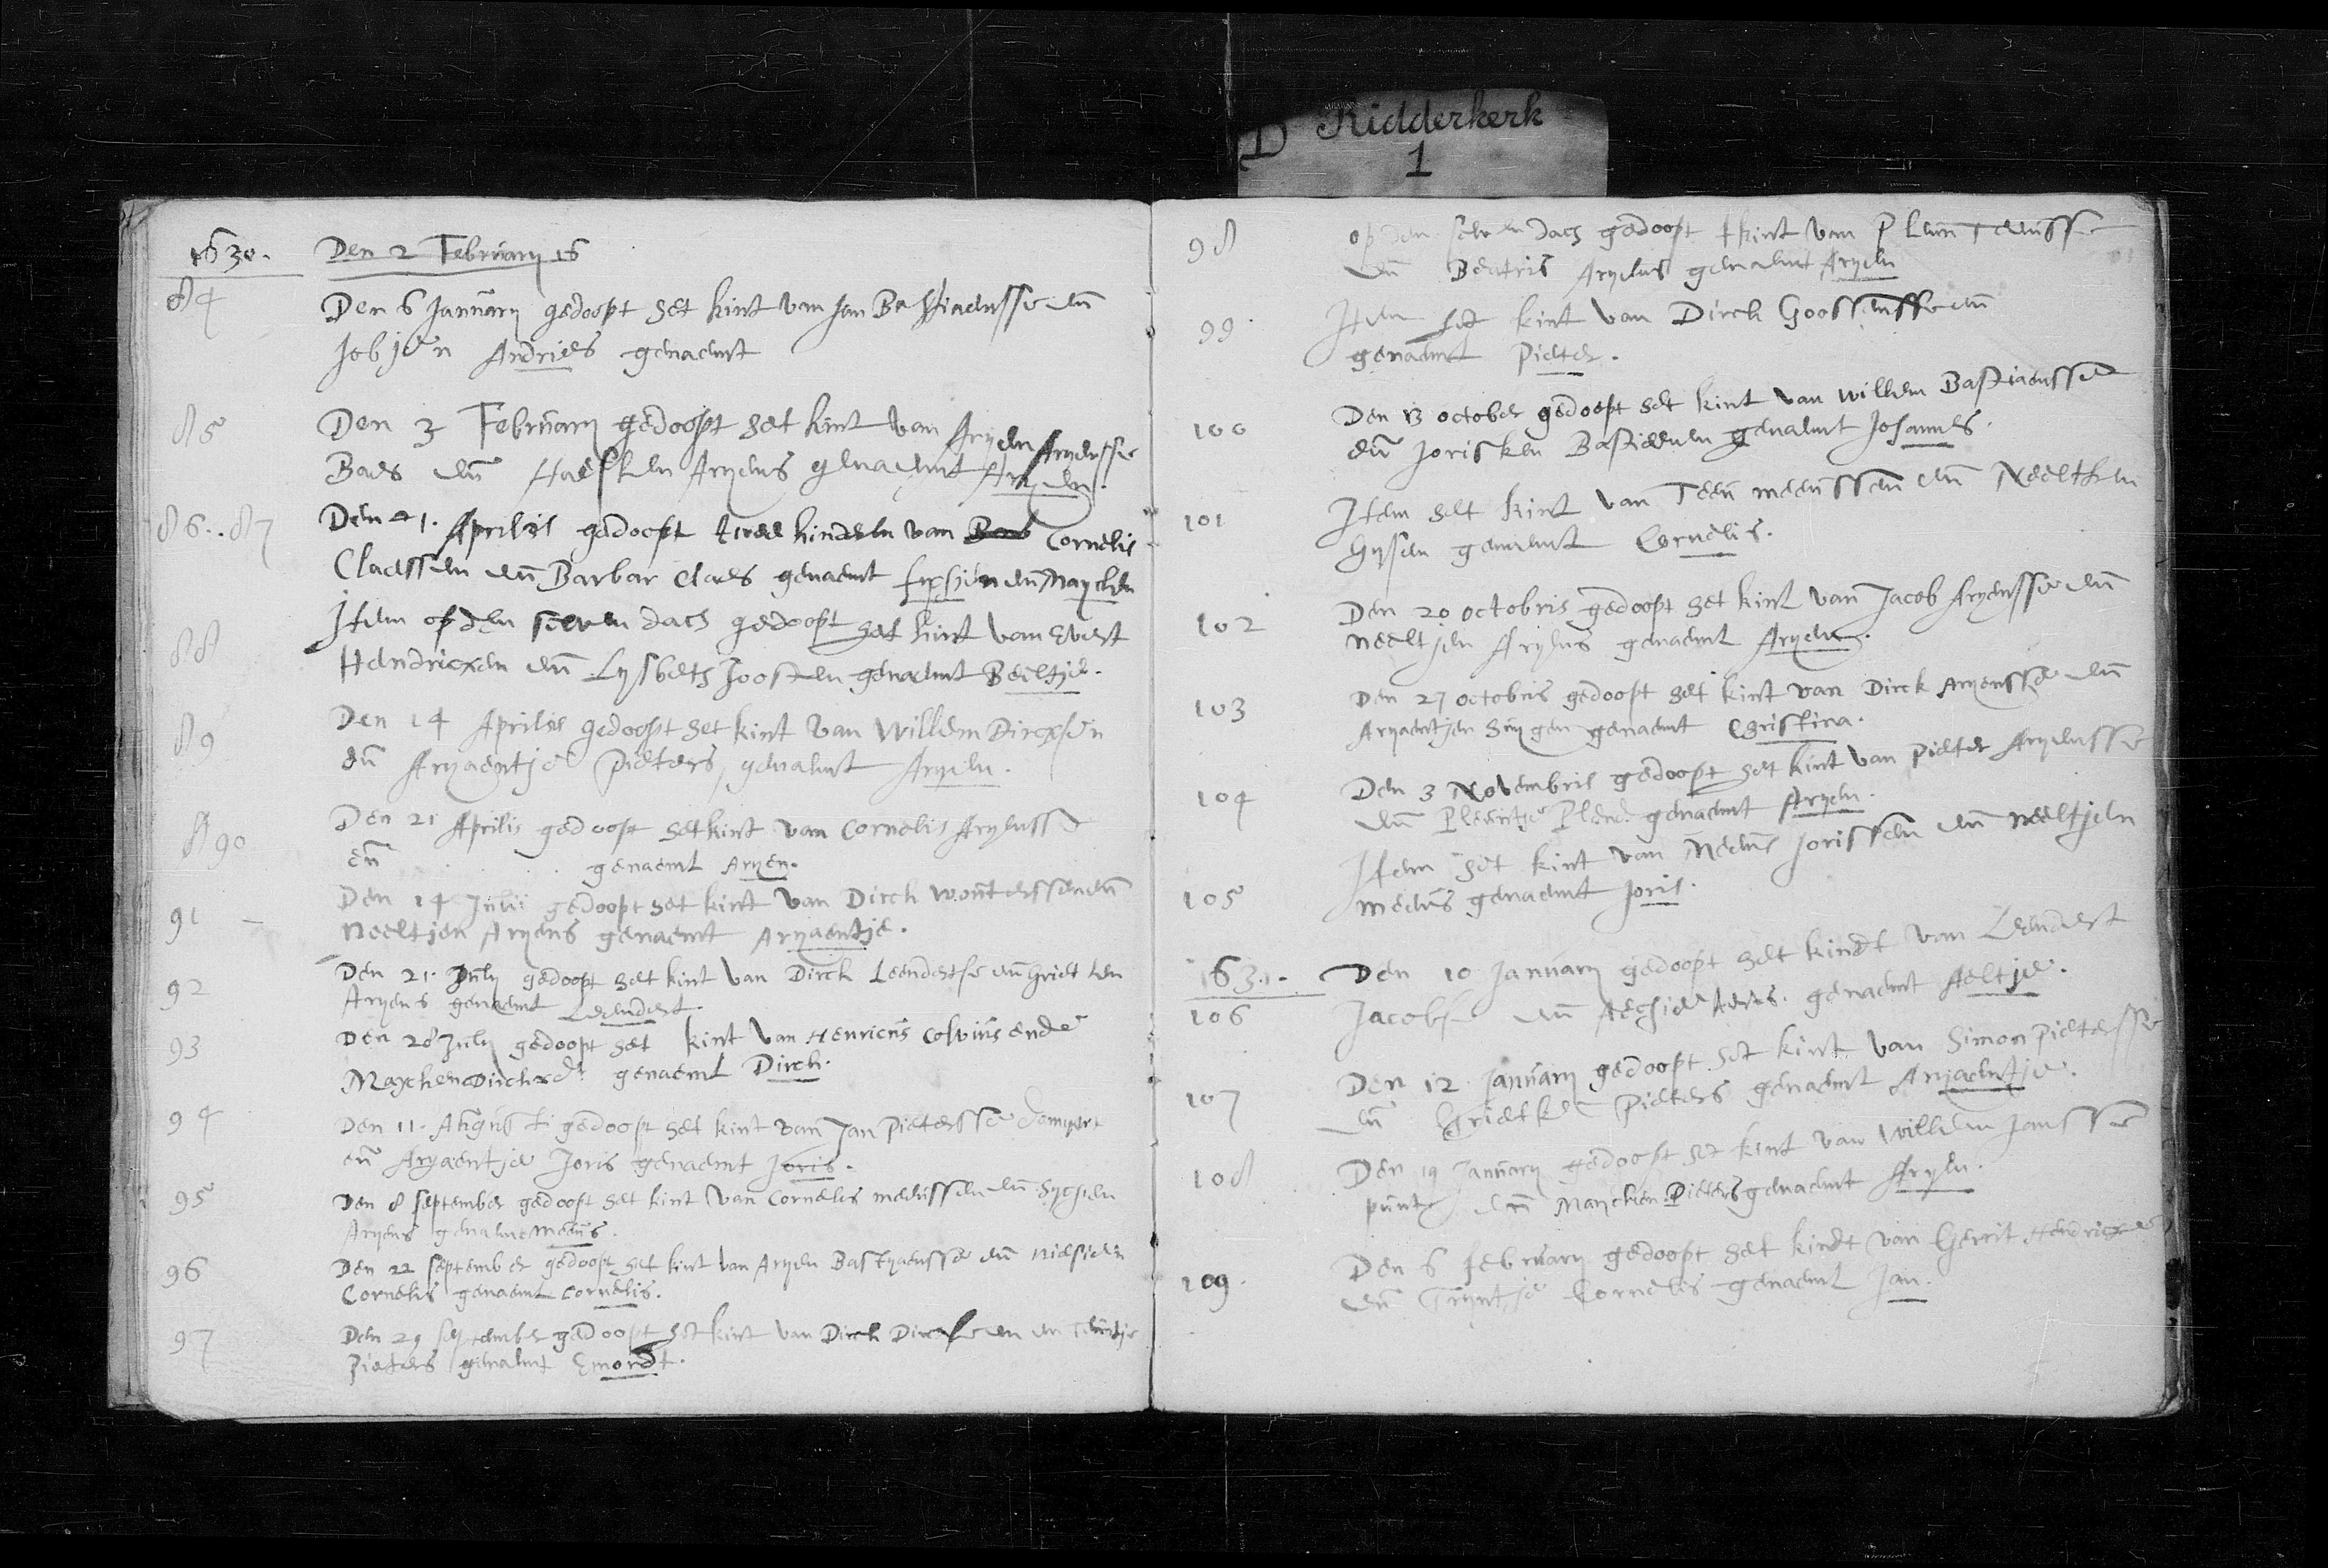 D Ridderkerk
1
1630. Den 2 Februarij 16
84 Den 6 Januarij gedoopt het kint van Jan Bastiaensse eñ
Jobjen Andries genaemt
85 Den 3 Februarij gedoopt het kint van Aryen Aryensse
Baes eñ Haesken Aryens genaemt Aryen.
86..87 Den 1. Aprilis gedoopt twee kinderen van Cornelis
Claessen eñ Barbar Claes genaemt eñ Maycken
88 Item opden selven dach gedoopt het kint van Evert
Hendricxen eñ Lysbeth Joosten genaemt Beeltje.
89 Den 14 Aprilis gedoopt het kint van Willem Dircxsen
eñ Aryaentje Pieters, genaemt Aryen.
90 Den 21 Aprilis gedoopt het kint van Cornelis Aryensse
eñ . . . . genaemt Aryen.
91 Den 14 Julii gedoopt het kint van Dirck Wouterssen eñ
Neeltjen Aryens genaemt Aryaentje.
92 Den 21. July gedoopt het kint van Dirck Leendertse eñ Grietken
Aryens genaemt Leendert.
93 Den 28 July gedoopt het kint van Henricus Colvius ende
Maycken Dirckxdr. genaemt Dirck.
94 Den 11. Augusti gedoopt het kint van Jan Pietersse
eñ Aryaentje Joris genaemt Joris.
95 Den 8 september gedoopt het kint van Cornelis meeussen eñ Sychjen
Aryens genaemt Meeus.
96 Den 22 september gedoopt het kint van Aryen Bastyaensse eñ Niesjen
Cornelis genaemt Cornelis.
97 Den 29 september gedoopt het kint van Dirck Dircxse en
Pieters genaemt Emondt.
98 op den selven dach gedoopt t kint van P Leun Teunsse
eñ Beatris Aryens genaemt Aryen
99 Item het kint van Dirck Goossensse eñ
genaemt Pieter.
100 Den 13 october gedoopt het kint van Willem Bastiaensse
eñ Jorisken Bastiaenen genaemt Johannes.
101 Item het kint van Teeu meeussen eñ Neeltken
Gysen genaemt Cornelis.
102 Den 20 octobris gedoopt het kint van Jacob Aryensse eñ
Neeltjen Aryens genaemt Aryen.
103 Den 27 octobris gedoopt het kint van Dirck Aryensse eñ
Aryaentjen Huygen genaemt Christina.
104 Den 3 Novembris gedoopt het kint van Pieter Aryensse
eñ Pleuntje Pleun. genaemt Aryen.
105 Item het kint van Meeus Jorissen eñ Neeltjen
Meeus genaemt Joris.
1631. Den 10 Januarij gedoopt het kindt van Leendert
106 Jacobse eñ Aechje genaemt Aeltje.
107 Den 12 Januarij gedoopt het kint van Simon Pietersse
eñ Grietken Pieters genaemt Aryaentje.
108 Den 19 Januarij gedoopt het kint van Willem Janssen
punt eñ Maycken Pieters genaemt Aryen.
109. Den 6 februarij gedoopt het kindt van Gerrit Hendricxse
eñ Tryntje Cornelis genaemt Jan.